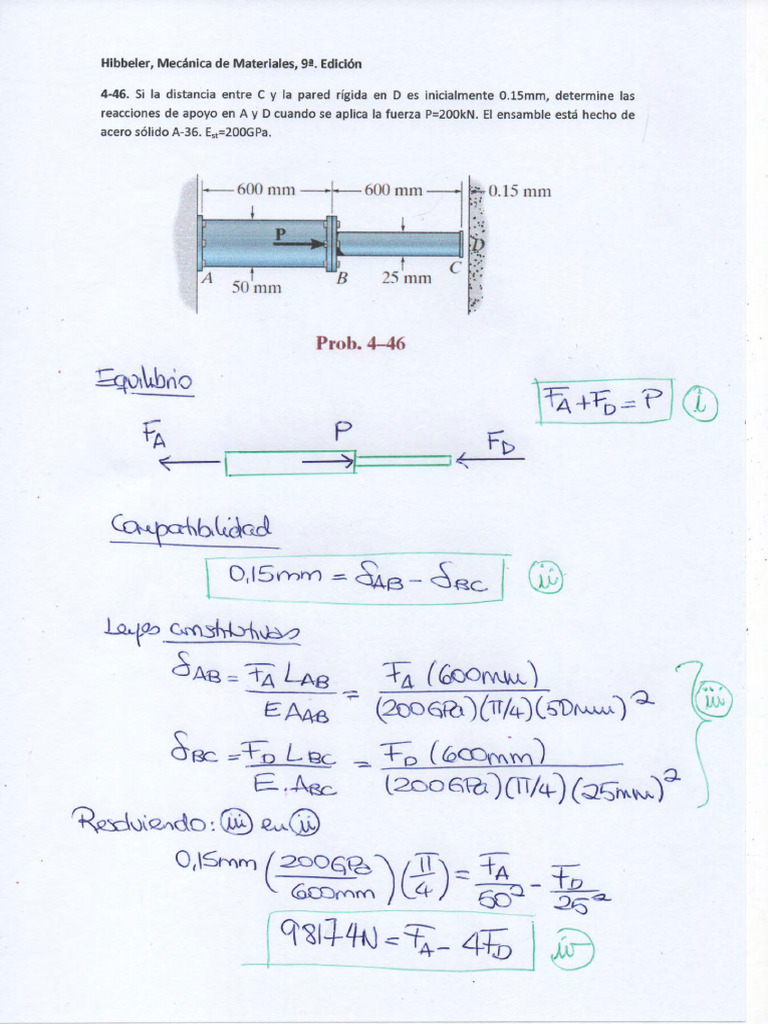 Hibbeler, Mecánica de Materiales, 9ª. Edición
4-46. Si la distancia entre C y la pared rígida en D es inicialmente 0.15mm, determine las
reacciones de apoyo en A y D cuando se aplica la fuerza P=200kN. El ensamble está hecho de
acero sólido A-36. Est=200GPa.
600 mm 600 mm 0.15 mm
P D
A B C
50 mm 25 mm
Prob. 4–46
Equilibrio
FA+FD=P i
FA P FD
Compatibilidad
0,15mm = δAB - δBC ii
Leyes constitutivas
δAB = FA LAB / E AAB = FA (600mm) / (200GPa)(π/4)(50mm)²
iii
δBC = FD LBC / E.ABC = FD (600mm) / (200GPa)(π/4)(25mm)²
Resolviendo: iii en ii
0,15mm (200GPa / 600mm) (π / 4) = FA / 50² - FD / 25²
98174N = FA - 4FD iv